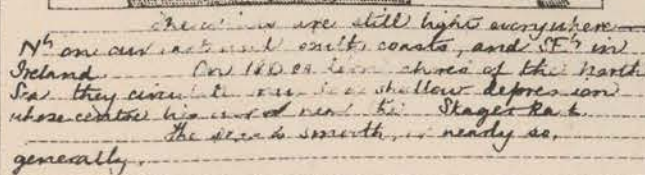 The winds are still light everywhere —
Nly on our and south coasts, and SEly in
Ireland. On the shores of the North
Sea they circulate shallow depression
whose centre near the Skager Rak.
The sea is smooth, or nearly so,
generally.